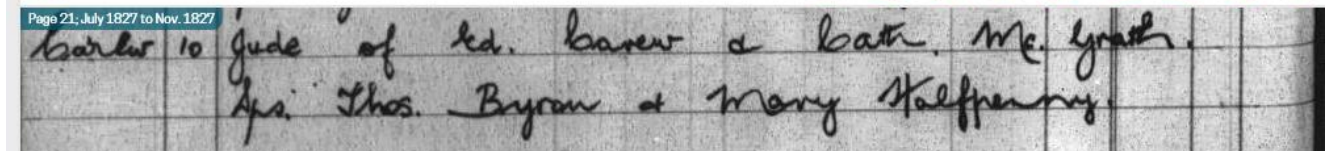 Page 21; July 1827 to Nov. 1827
Carlow 10 Jude of Ed. Carew & Cath. Mc. Grath.
Sps. Thos. Byron & Mary Halfpenny.